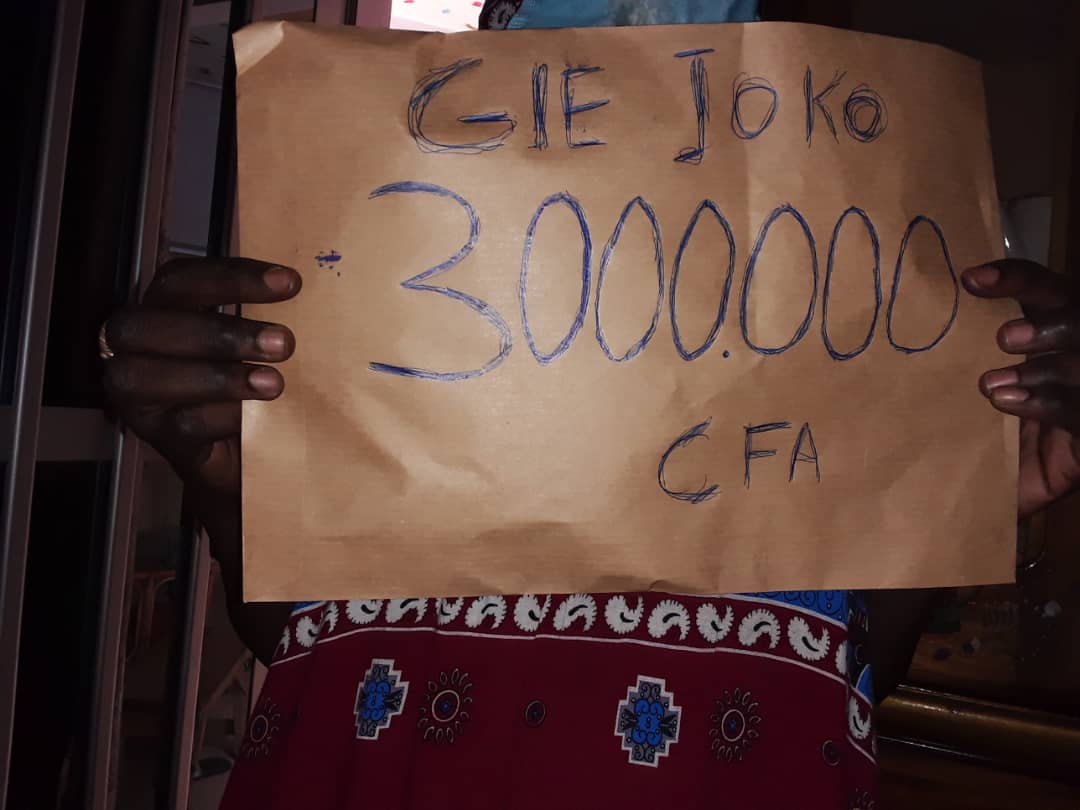 GIE JOKO
3000.000
CFA